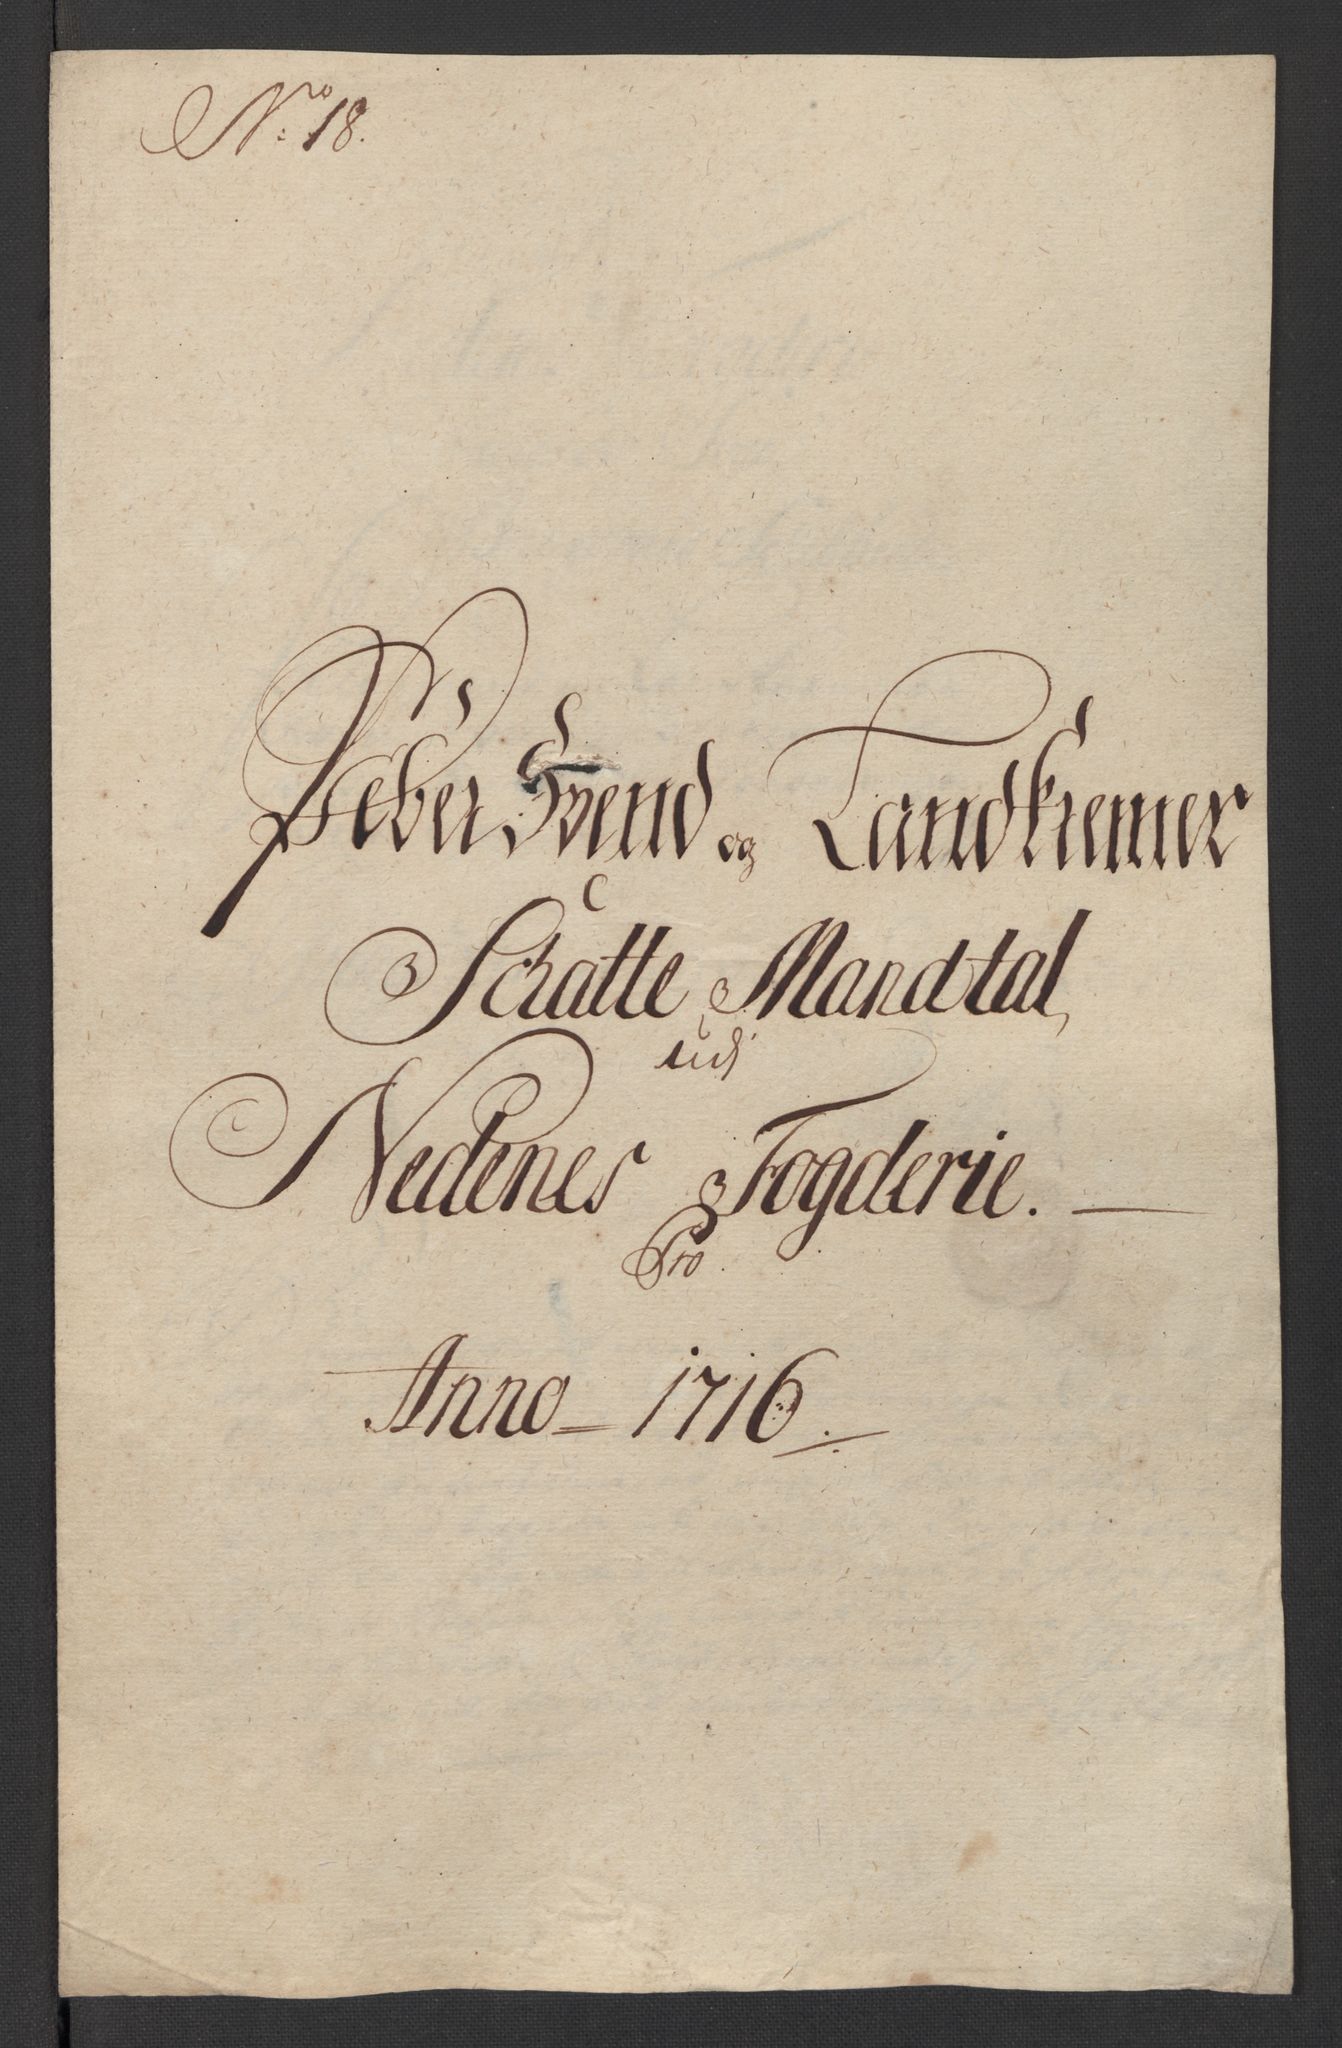 No: 18.
Peber Svend og Landkremer
Schatte Mandtal,
udj
Nedenes Fogderie. —
Pro.
Anno – 1716.